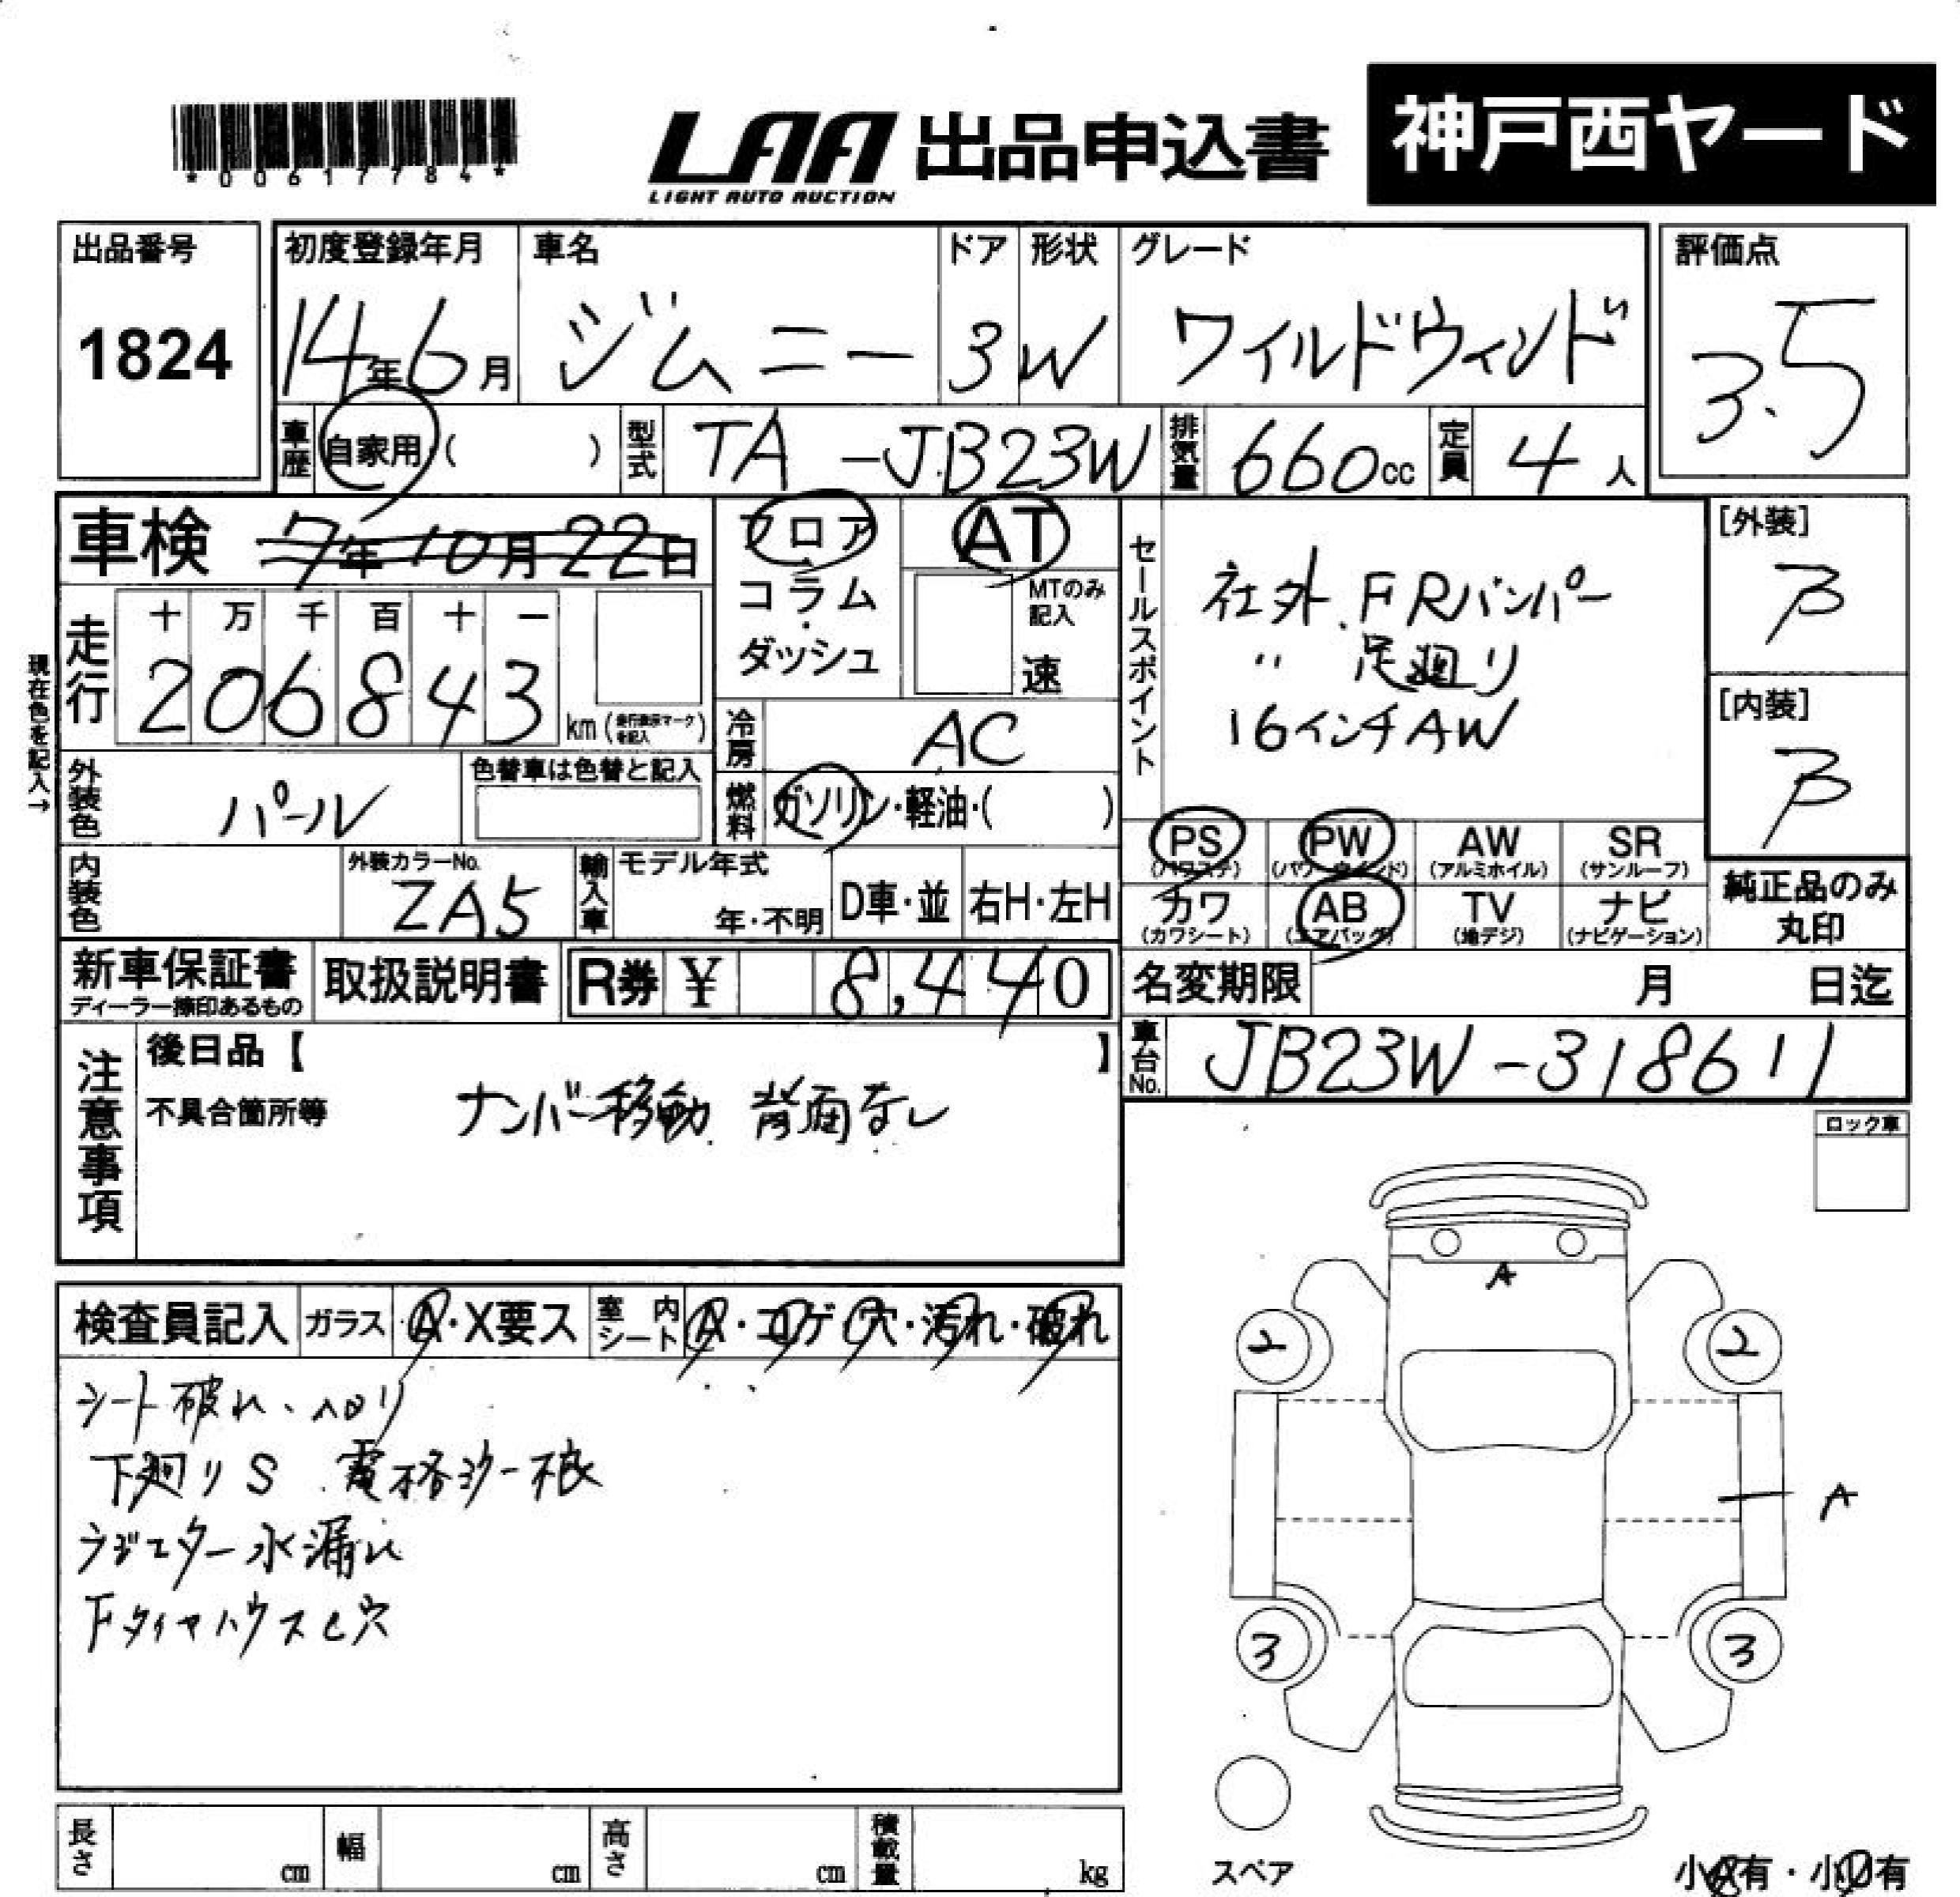 *00617784*
LAA 出品申込書 神戸西ヤード
LIGHT AUTO AUCTION
出品番号 初度登録年月 車名 ドア 形状 グレード 評価点
1824 14年6月 ジムニー 3 W ワイルドウィンド 3.5
車歴 自家用・( ) 型式 TA-JB23W 排気量 660cc 定員 4人
車検 7年10月22日 フロア AT
コラム
ダッシュ
MTのみ記入
速
セールスポイント
社外 FRバンパー
〃 足廻り
16インチAW
[外装]
β
[内装]
β
現在色を記入→
走行 十 万 千 百 十 一
206843 km (走行表示マークを記入)
冷房 AC
外装色 パール 色替車は色替と記入
燃料 ガソリン・軽油・( )
PS PW AW SR
(パワステ) (パワーウインド) (アルミホイル) (サンルーフ)
内装色 外装カラーNo. ZA5 輸入車 モデル年式 年・不明 D車・並 右H・左H
カワ AB TV ナビ
(カワシート) (エアバッグ) (地デジ) (ナビゲーション)
純正品のみ
丸印
新車保証書 取扱説明書 R券 ¥ 8,440
ディーラー捺印あるもの
名変期限 月 日迄
車台No. JB23W-318611
注意事項
後日品【 】
不具合箇所等 ナンバー移動 背面なし
ロック車
検査員記入 ガラス A・X要ス 室内シート A・コゲ・穴・汚れ・破れ
シート破れ、ヘロリ
下廻りS 電格ミラー不良
ラジエター水漏れ
FタイヤハウスC穴
A
2 2
A
3 3
スペア
長さ cm 幅 cm 高さ cm 積載量 kg
小A有・小U有